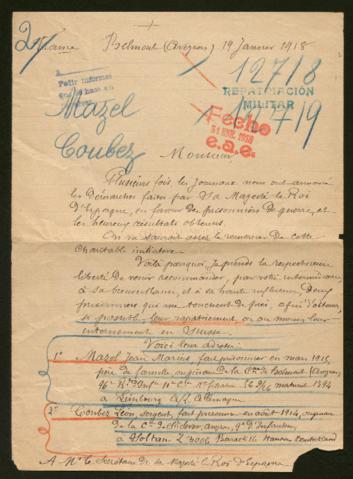 Belmont (Aveyron) 19 Janvier 1918
12718
REPATRIACIÓN
MILITAR
Pedir informes
Mazel
Coubez
Fecho
31 ENE. 1918
e.a.e.
Monsieur
Plusieurs fois les journaux nous ont annoncé
les démarches faites par Sa Majesté le Roi
d'Espagne, en faveur des prisonniers de guerre, et
les heureux résultats obtenus.
On ne saurait assez le remercier de cette
charitable initiative.
Voilà pourquoi, je prends la respectueuse
liberté de venir recommander, par votre intermédiaire
à sa bienveillance, et à sa haute influence, deux
prisonniers qui me touchent de près, afin d'obtenir,
si possible leur rapatriement ou au moins leur
internement en Suisse.
Voici leur adresse:
1° Mazel Jean Marius, fait prisonnier en mars 1915,
père de famille, originaire de la Cne de Belmont (Aveyron)
96e
à Limbourg a/L Allemagne
2° Coubez Léon, sergent, fait prisonnier en août 1914, originaire
de la Cne de St Sever, Aveyron,
à Soltau
A Mr le Secrétaire de sa Majesté le Roi d'Espagne